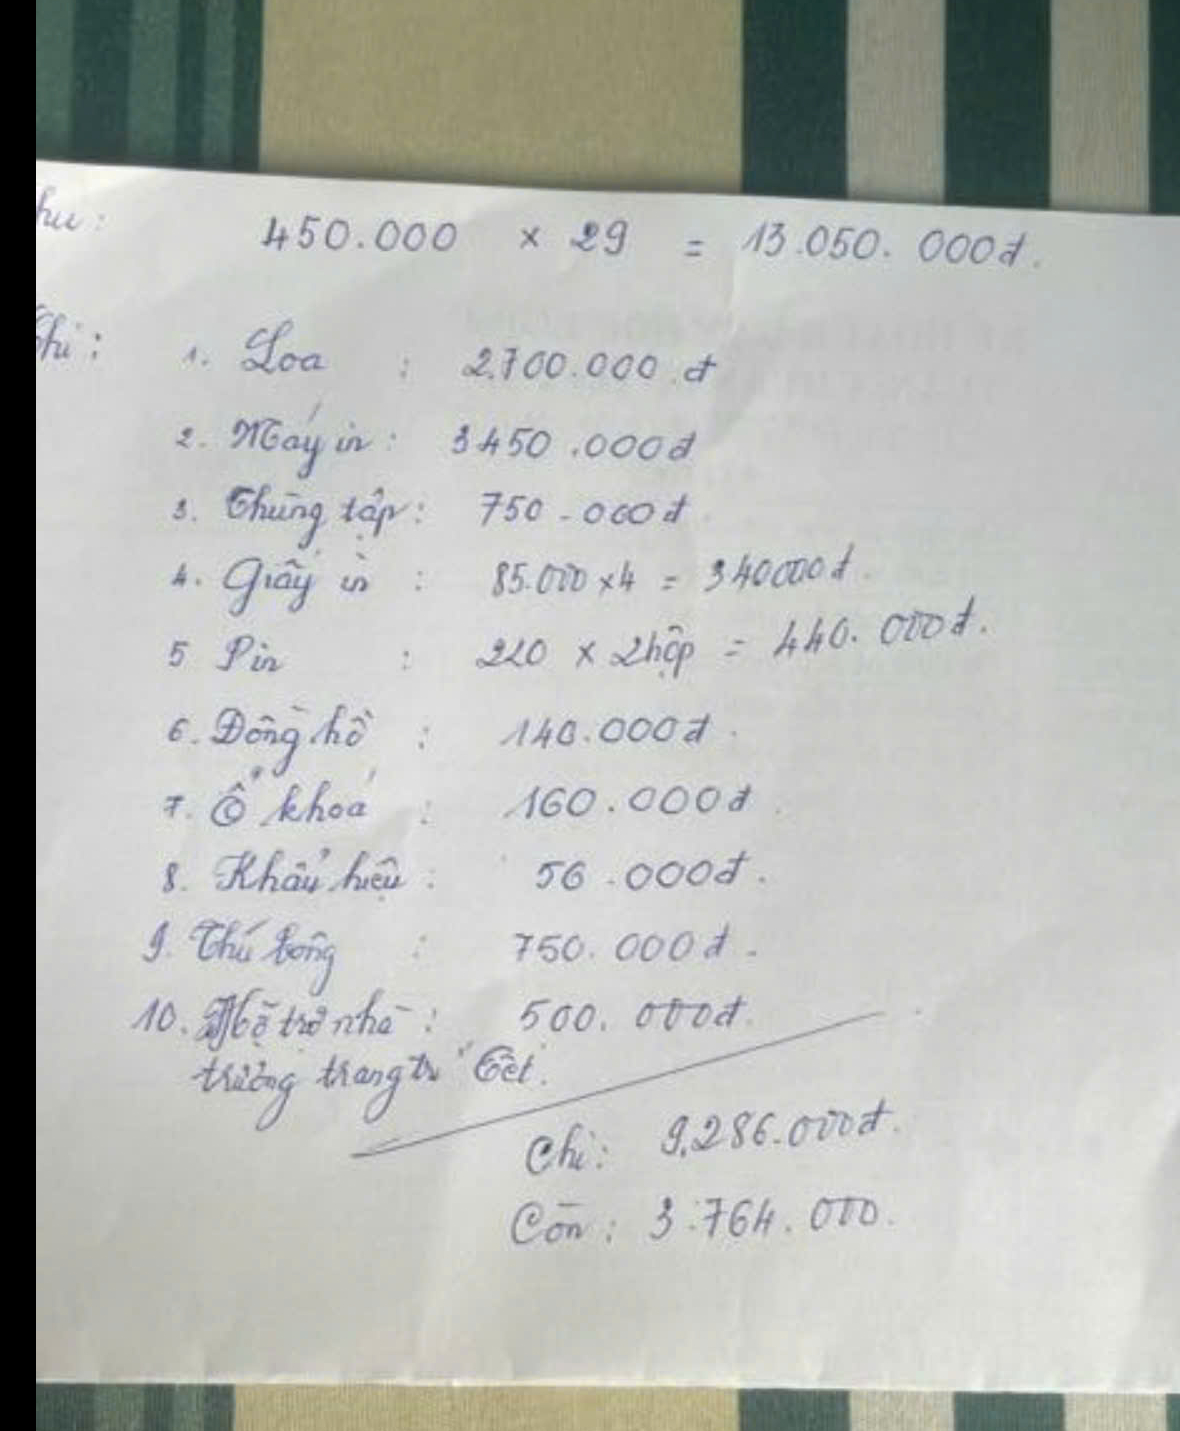 hu : 450.000 × 29 = 13.050.000đ.
Chi : 1. Loa : 2.700.000 đ
2. Máy in : 3450.000đ
3. Thùng tập : 750.000đ
4. Giấy in : 85.000 × 4 = 340000đ.
5 Pin : 220 × 2 hộp = 440.000đ.
6. Đồng hồ : 140.000đ.
7. Ổ khoá : 160.000đ
8. Khẩu hiệu : 56.000đ.
9. Thú bông : 750.000đ.
10. Hỗ trợ nhà : 500.000đ.
trường trang trí Tết.
Chi : 9.286.000đ.
Còn : 3.764.000.